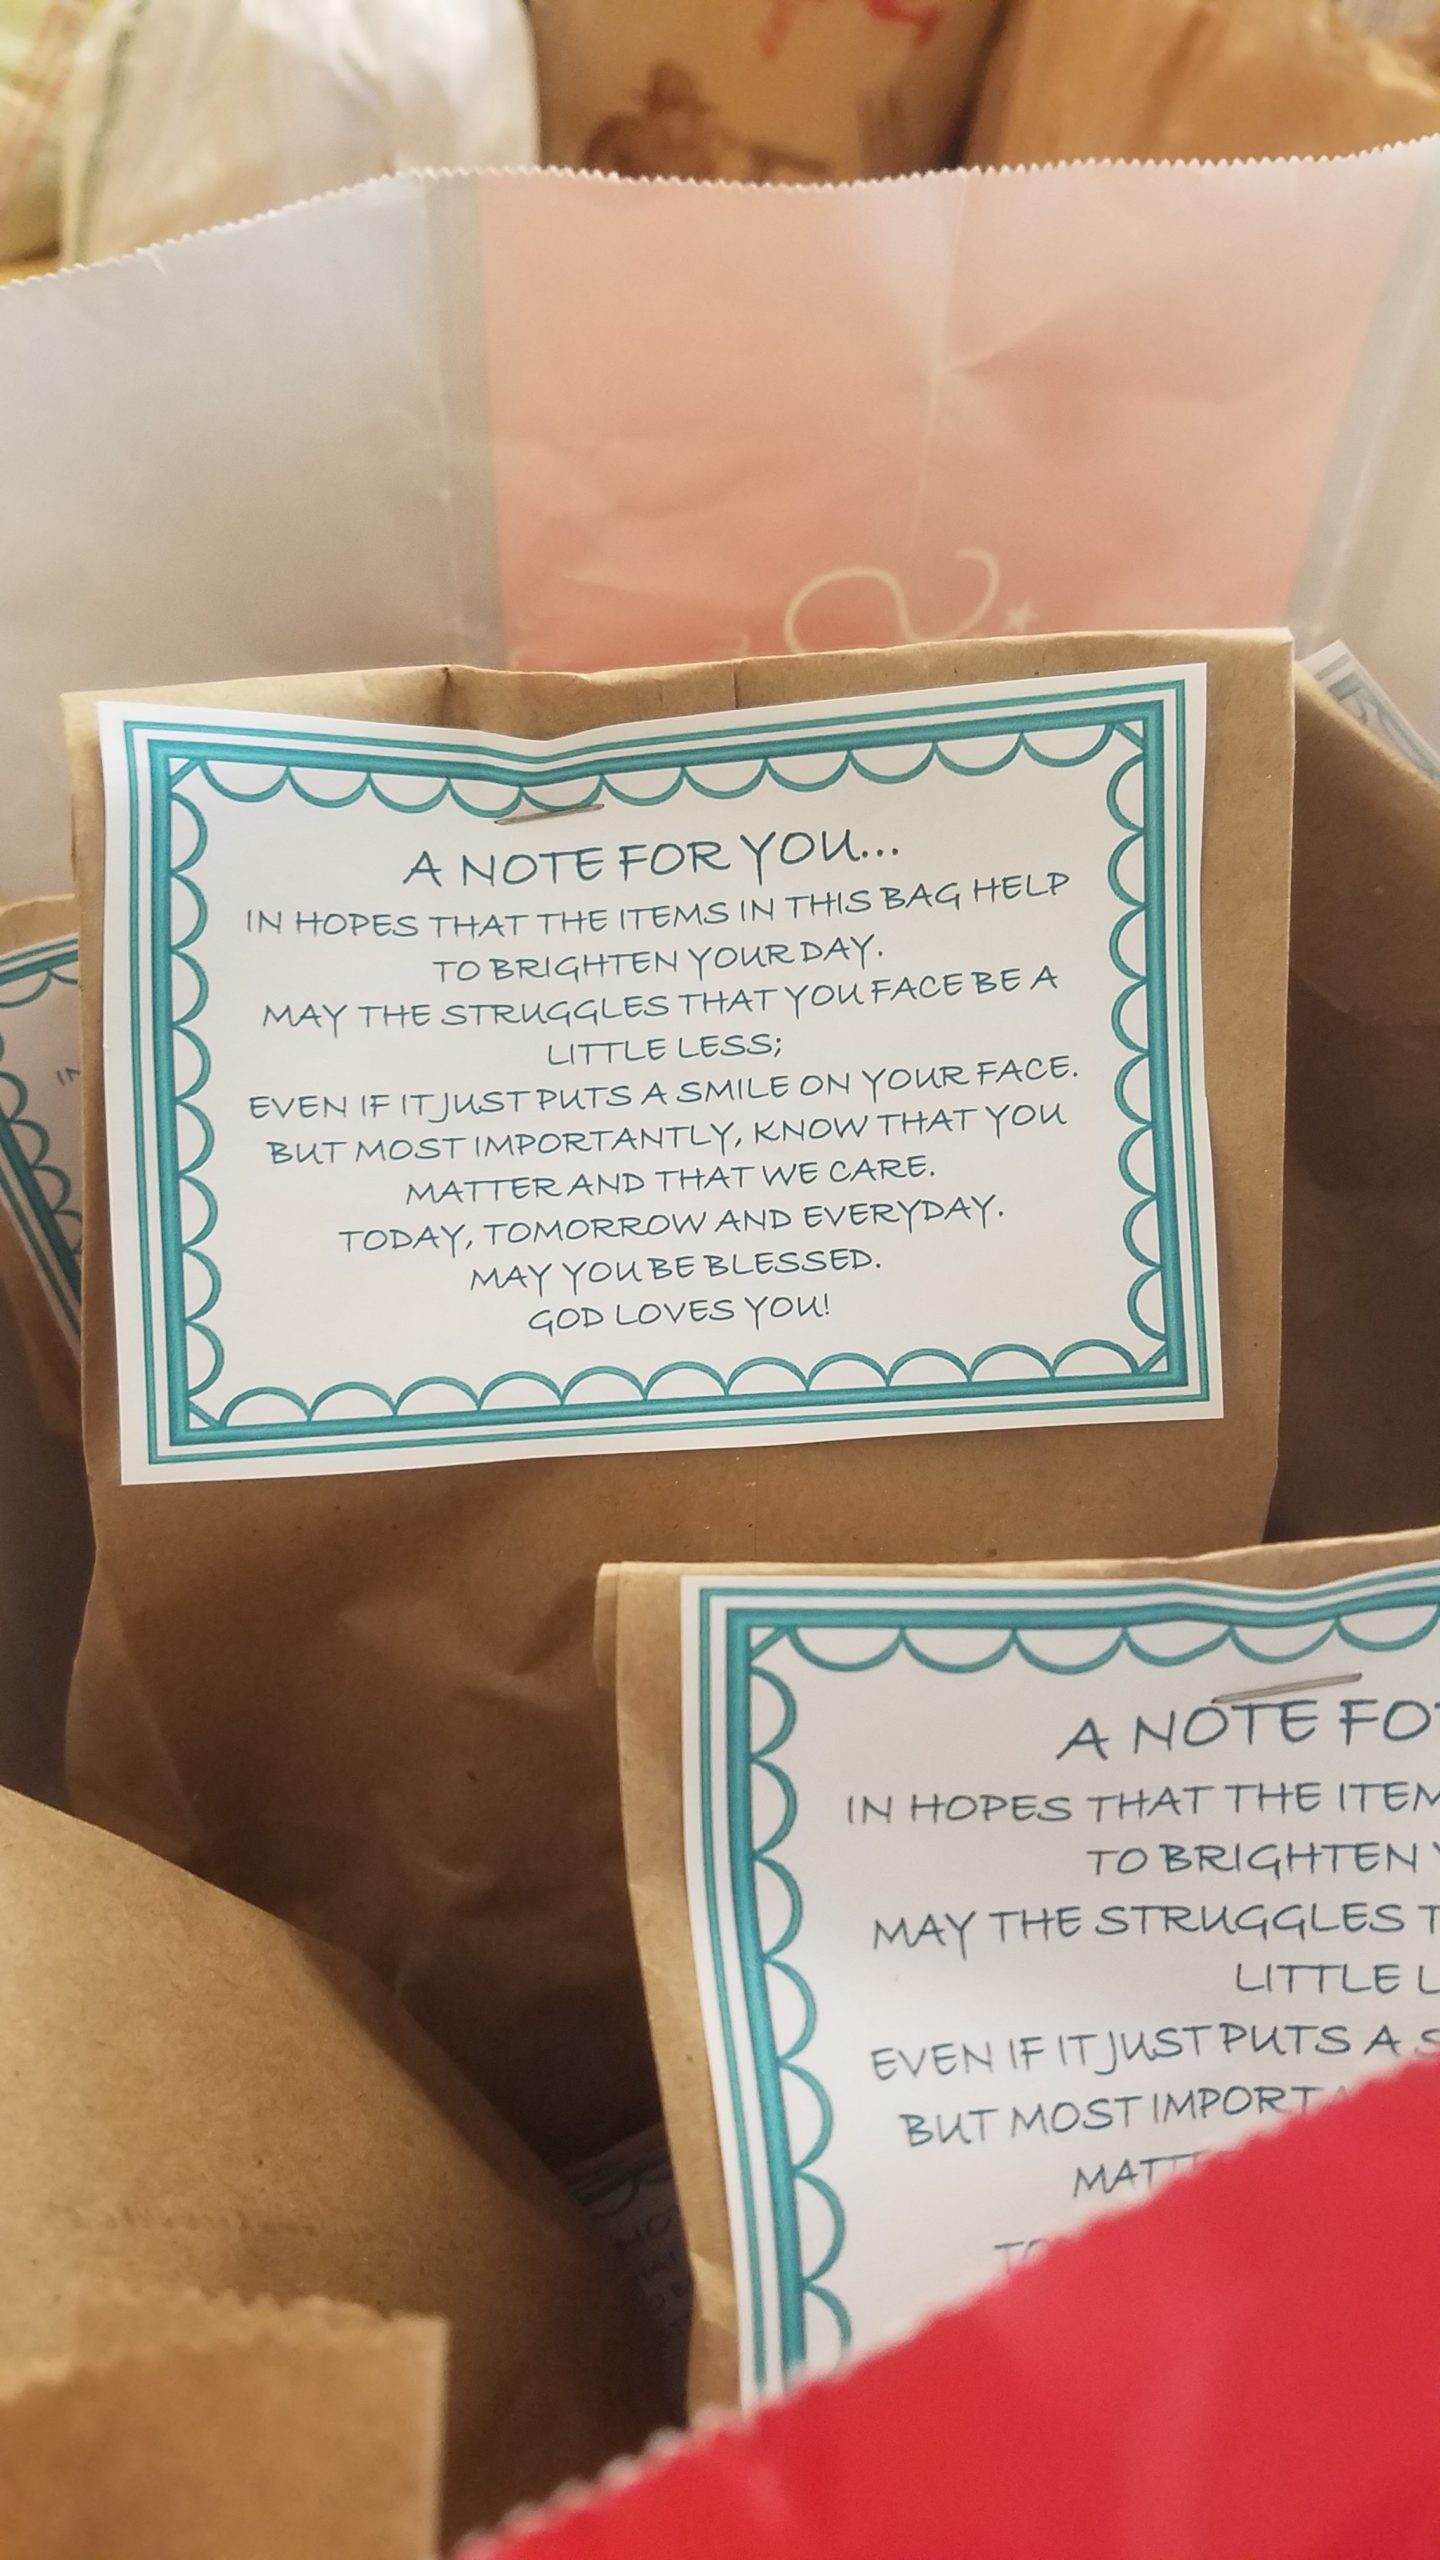 A NOTE FOR YOU...
IN HOPES THAT THE ITEMS IN THIS BAG HELP
TO BRIGHTEN YOUR DAY.
MAY THE STRUGGLES THAT YOU FACE BE A
LITTLE LESS;
EVEN IF IT JUST PUTS A SMILE ON YOUR FACE.
BUT MOST IMPORTANTLY, KNOW THAT YOU
MATTER AND THAT WE CARE.
TODAY, TOMORROW AND EVERYDAY.
MAY YOU BE BLESSED.
GOD LOVES YOU!
A NOTE FO
IN HOPES THAT THE ITEM
TO BRIGHTEN
MAY THE STRUGGLES T
LITTLE L
EVEN IF IT JUST PUTS A S
BUT MOST IMPORTA
MATT
TO